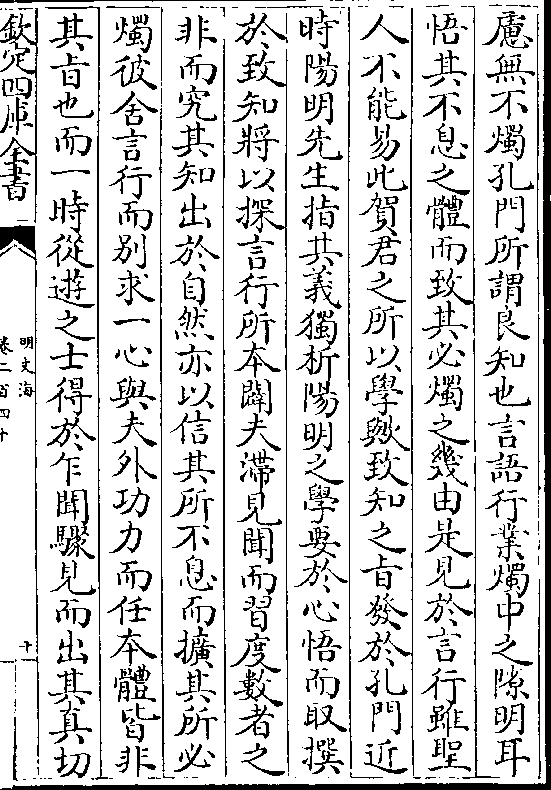 慮無不燭孔門所謂良知也言語行業燭中之隙明耳
悟其不息之體而致其必燭之幾由是見於言行雖聖
人不能易此賀君之所以學歟致知之旨發於孔門近
時陽明先生指其義獨析陽明之學要於心悟而取撰
於致知將以探言行所本闢夫滯見聞而習度數者之
非而究其知出於自然亦以信其所不息而擴其所必
燭彼舍言行而別求一心與夫外功力而任本體皆非
其旨也而一時從遊之士得於乍聞驟見而出其真切
欽定四庫全書
明文海
卷二百四十
十